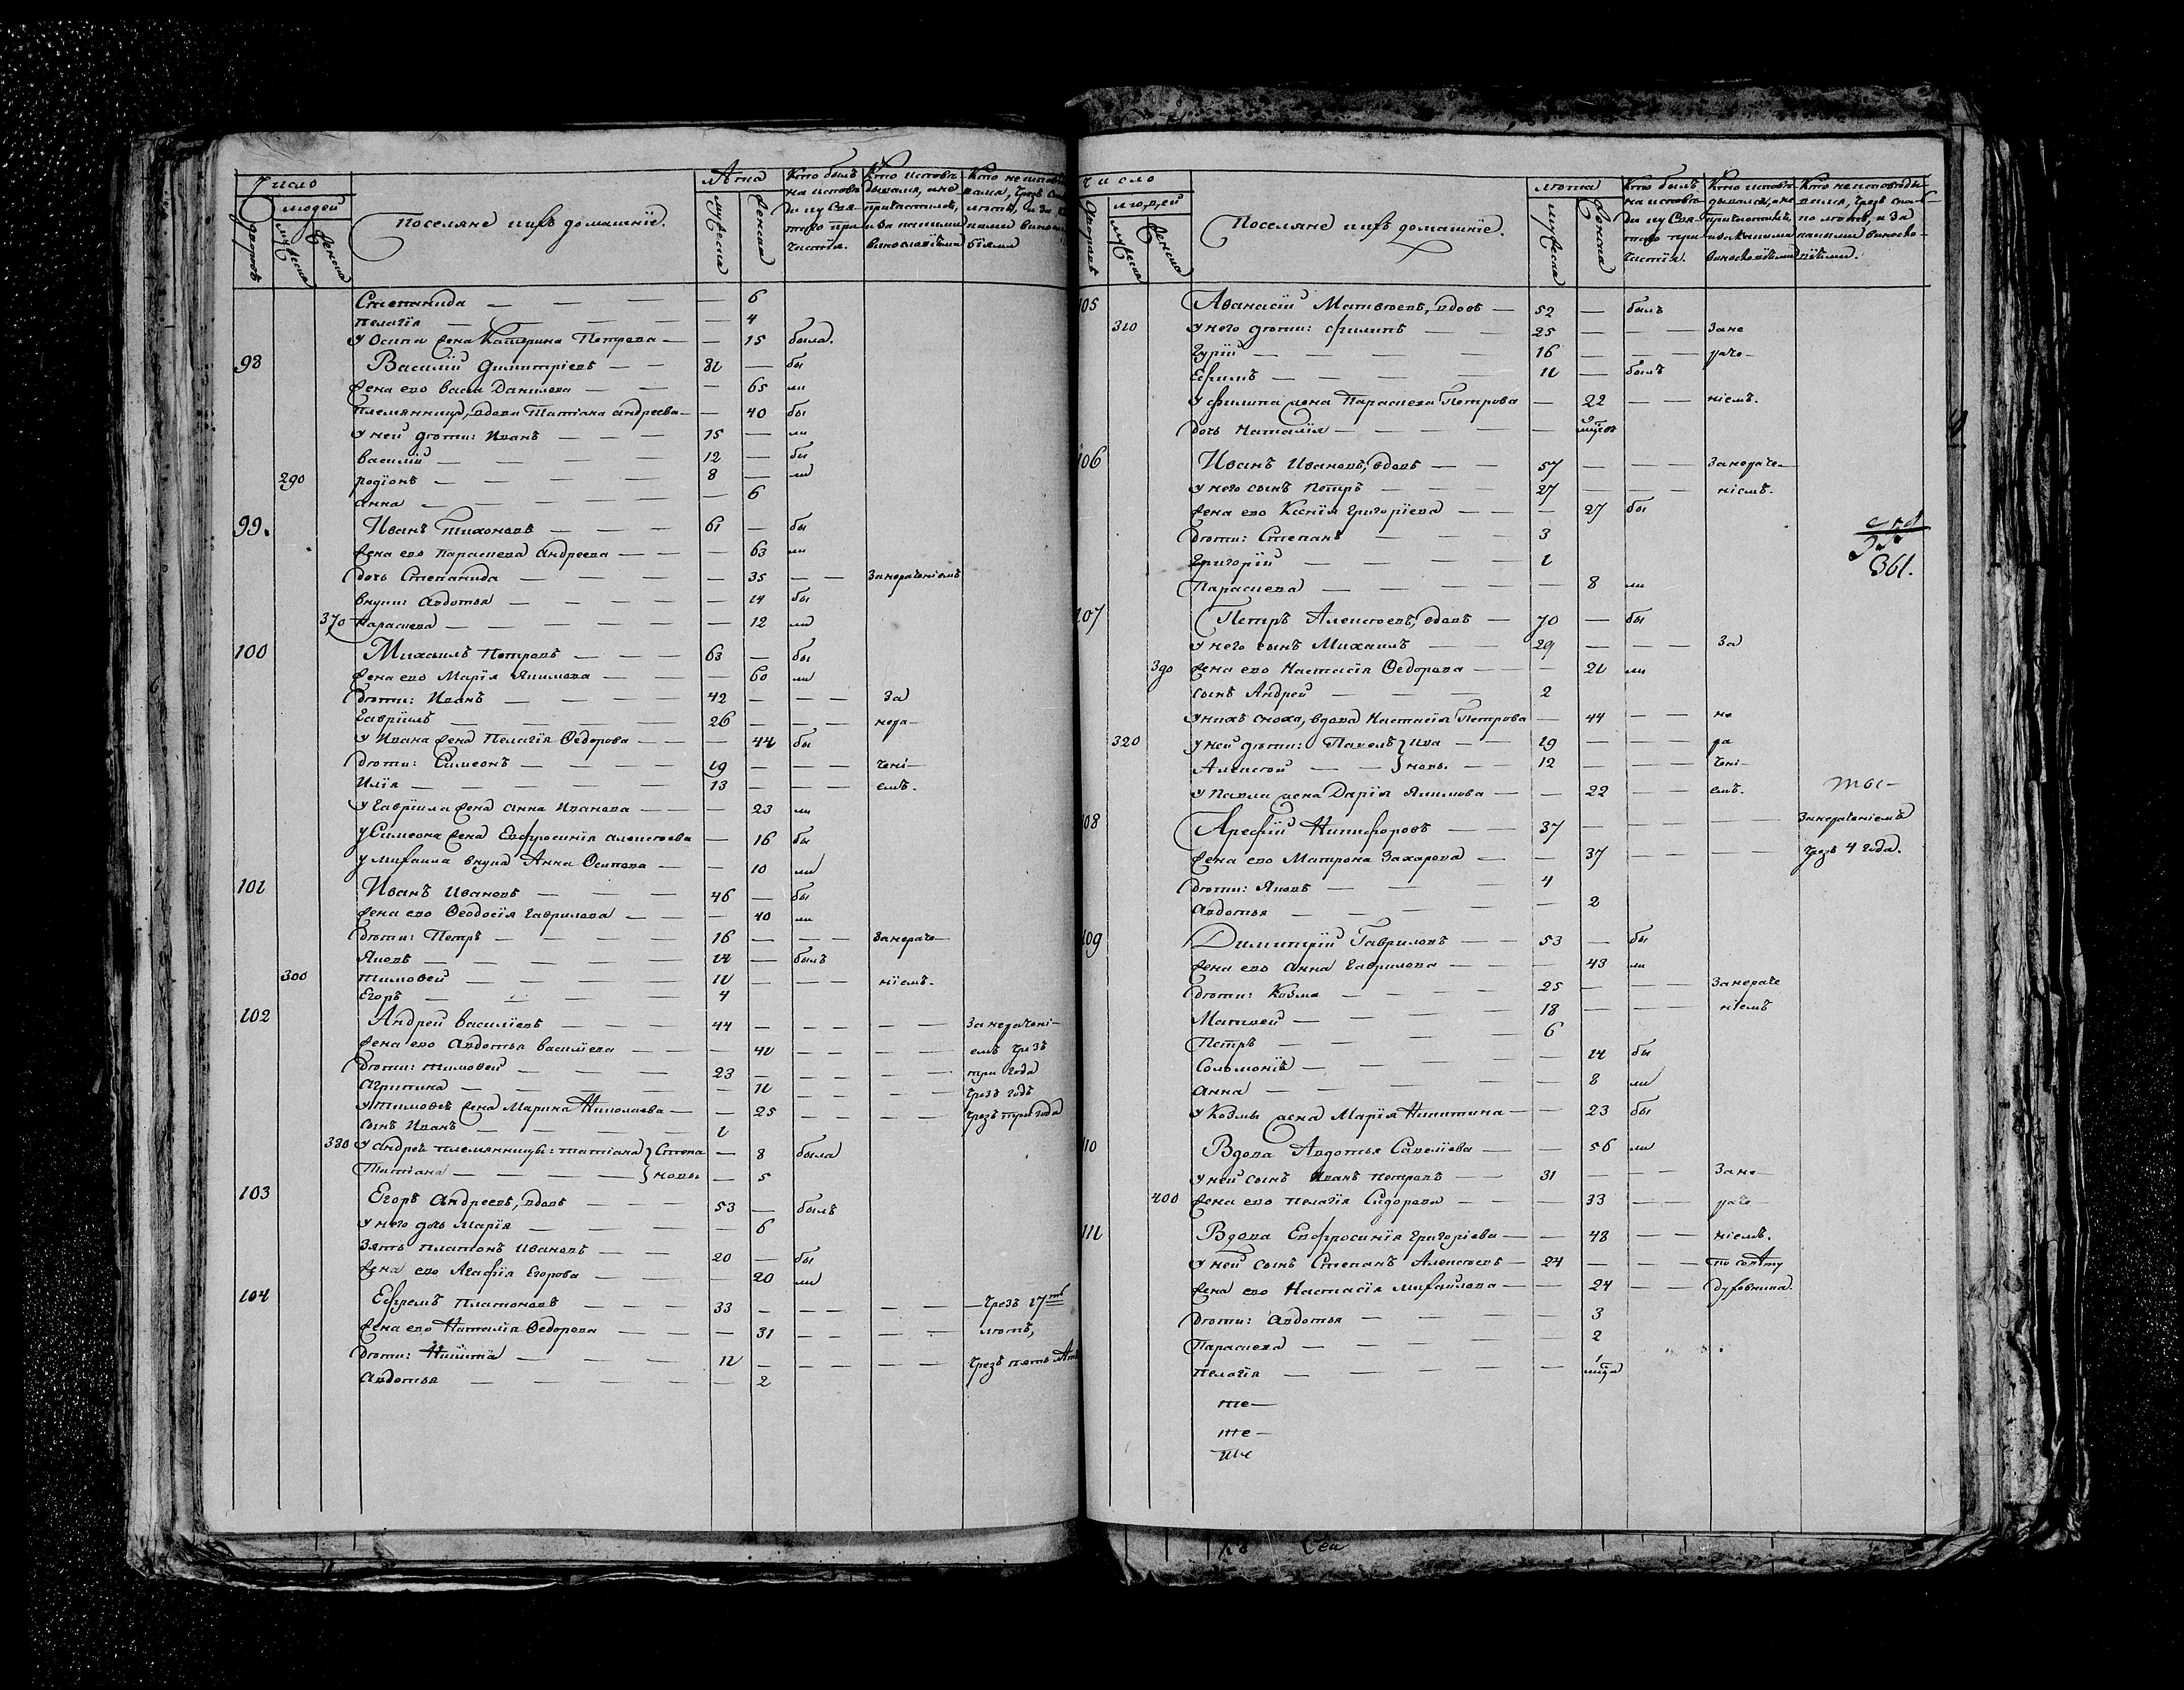 Число
людей
дворовъ
мужеска
женска
Поселяне ихъ домашніе.
Лѣта
мужеска
женска
Кто былъ на исповѣди и у Святаго причастія.
Кто исповѣдывался, а не причастился, и за какими винословіями
Степанида — — — 6
Пелагія — — — 4
У Осипа жена Катерина Петрова — — 15 была.
98 Василій Димитріевъ — — 81 — бы
жена его Васса Данилова — — 65 ли
племянница, вдова Татіана Андреева — — 40 бы
У ней дѣти: Иванъ — — — 15 — ли
Василій — — — 12 — бы
290 Родіонъ — — — 8 — ли
Анна — — — — 6
99. Иванъ Тихоновъ — — — 61 — бы
жена его Параскева Андреева — — — 63 ли
дочь Степанида — — — — 35 — — За нераченіемъ
внуки: Авдотья — — — — 14 бы
370 Параскева — — — — 12 ли
100 Михаилъ Петровъ — — — 63 — бы
жена его Марія Якимова — — — 60 ли
дѣти: Иванъ — — — 42 — — — За
Гавріилъ — — — 26 — — — нера—
У Ивана жена Пелагія Ѳедорова — — — 44 бы
дѣти: Симеонъ — — — 19 — — — чені—
Илія — — — 13 — — — емъ.
У Гавріила жена Анна Иванова — — — 23 ли
У Симеона жена Евфросинія Алексѣева — 16 бы
У Михаила внука Анна Осипова — — 10 ли
101 Иванъ Ивановъ — — — 46 — бы
жена его Ѳеодосія Гаврилова — — — 40 ли
дѣти: Петръ — — — 16 — — — За нераче—
Яковъ — — — 14 — былъ
300 Тимоѳей — — — 11 — — — ніемъ.
Егоръ — — — 4
102 Андрей Васильевъ — — — 44 — — — — — За нерачені—
жена его Авдотья Васильева — — — 41 — — — — емъ чрезъ
дѣти: Тимоѳей — — — 23 — — — — — три года
Агрипина — — — — 11 — — — — чрезъ годъ
У Тимоѳея жена Марина Николаева — — 25 — — — — чрезъ три года
сынъ Иванъ — — — 1
380 У Андрея племянницы: Татіана } Степа — 8 была
Татіана — — — } новы — 5
103 Егоръ Андреевъ, вдовъ — — — 53 — былъ
У него дочь Марія — — — — 6
Зять Платонъ Ивановъ — — 20 — бы
жена его Агафія Егорова — — — 20 ли
104 Ефремъ Платоновъ — — — 33 — — — — — чрезъ 17ть
жена его Наталія Ѳедорова — — — 31 — — — — лѣтъ,
дѣти: Никита — — — 11 — — — — — чрезъ пять лѣтъ
Авдотья — — — — 2
Число
людей
дворовъ
мужеска
женска
Поселяне ихъ домашніе.
лѣта
мужеска
женска
Кто былъ на исповѣди и у Святаго причастія.
Кто исповѣдывался, а не причастился, и за какими винословіями
Кто не исповѣдывался, чрезъ сколько лѣтъ, и за какими винословіями.
105 Аѳанасій Матвѣевъ, вдовъ — 52 — былъ
310 У него дѣти: Филипъ — — 25 — — — За не
Гурій — — — 16 — — — раче—
Ефимъ — — — 11 — былъ
У Филипа жена Параскева Петрова — 22 — — ніемъ.
дочь Наталія — — —
106 Иванъ Ивановъ, вдовъ — — 57 — — — За нераче—
У него сынъ Петръ — — — 27 — — — ніемъ.
жена его Ксенія Григоріева — — — 27 бы
дѣти: Степанъ — — — 3
Григорій — — — 1
Параскева — — — 8 ли
107 Петръ Алексѣевъ, вдовъ — 70 — бы
У него сынъ Михаилъ — — 29 — — — За
390 жена его Настасія Ѳедорова — — 21 ли
сынъ Андрей — — — 2
У нихъ сноха, вдова Настасія Петрова — 44 — — не
320 У ней дѣти: Павелъ } Ива — — 19 — — — ра
Алексѣй — — } новы. — 12 — — — чені—
У Павла жена Дарія Якимова — — 22 — — емъ.
108 Арефій Никифоровъ — — 37 — — — — За нераченіемъ
жена его Матрона Захарова — — 37 — — — чрезъ 4 года.
дѣти: Яковъ — — — 4
Авдотья — — — — 2
109 Димитрій Гавриловъ — — 53 — бы
жена его Анна Гаврилова — — — 43 ли
дѣти: Козма — — — 25 — — — За нераче
Матвей — — — 18 — — — ніемъ
Петръ — — — 6
Соломонія — — — — 14 бы
Анна — — — — 8 ли
У Козмы жена Марія Никитина — — 23 бы
110 Вдова Авдотья Савельева — — 56 ли
У ней сынъ Иванъ Петровъ — — 31 — — — За не—
400 жена его Пелагія Сидорова — — — 33 — — раче
111 Вдова Евфросинія Григоріева — — 48 — — ніемъ.
У ней сынъ Степанъ Алексѣевъ — 24 — — — по совѣту
жена его Настасія Михаилова — — 24 — — духовника.
дѣти: Авдотья — — — — 3
Параскева — — — — 2
Пелагія — — —
361.